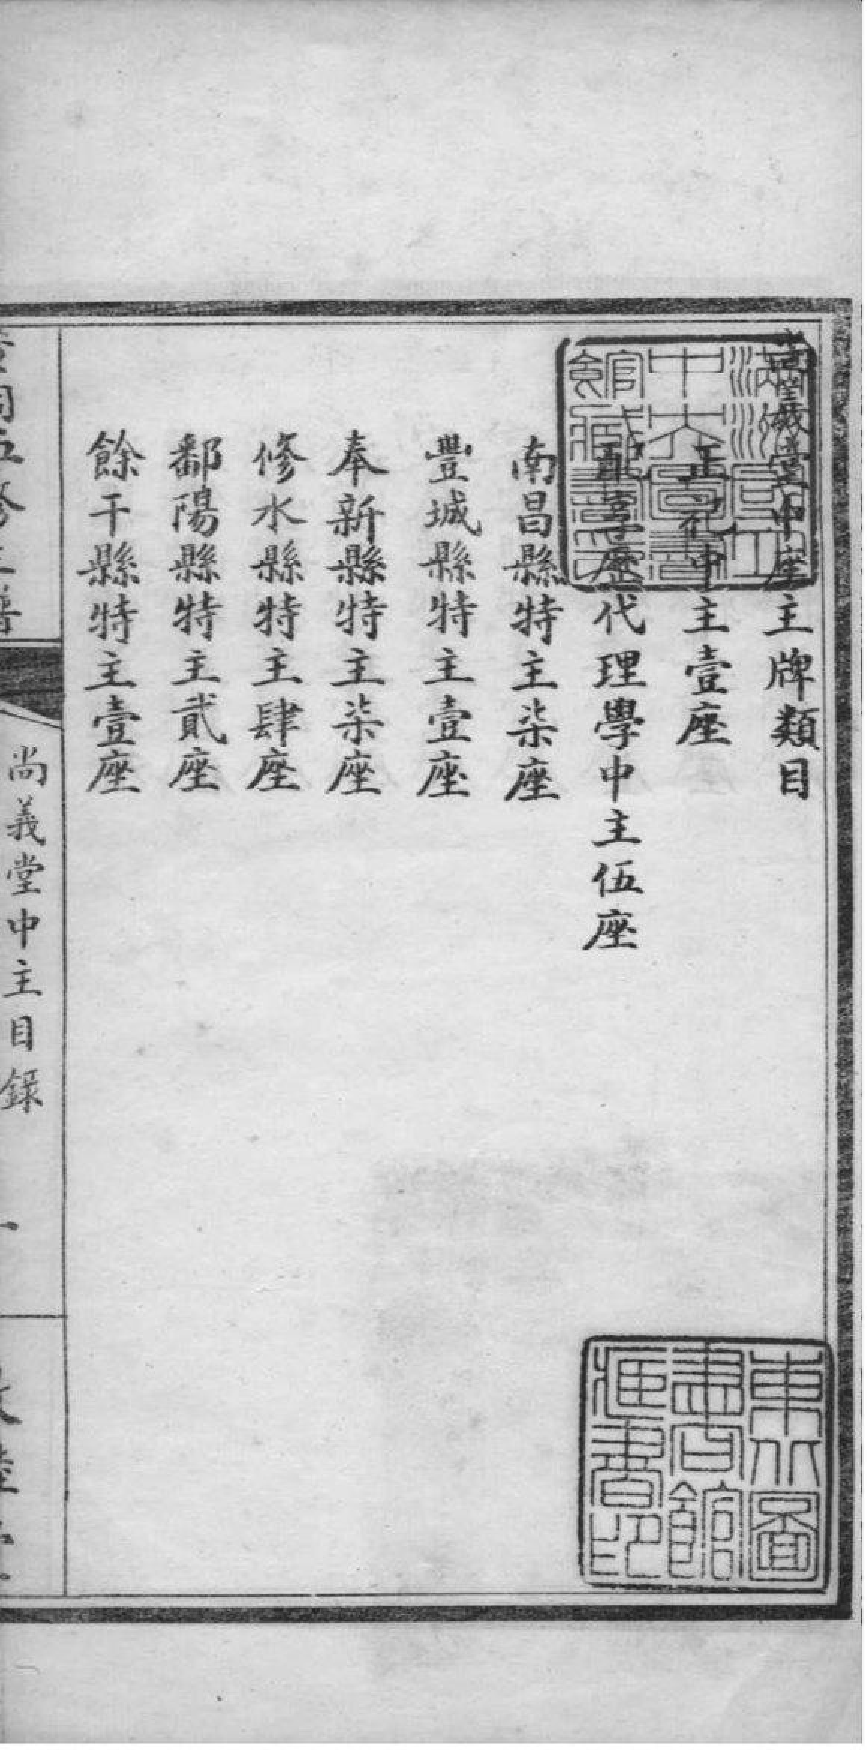 尚義堂中座主牌類目
正龕中主壹座
配享歷代理學中主伍座
南昌縣特主柒座
豐城縣特主壹座
奉新縣特主柒座
修水縣特主肆座
鄱陽縣特主貳座
餘干縣特主壹座
尚義堂中主目録
一
東北圖書館藏書印